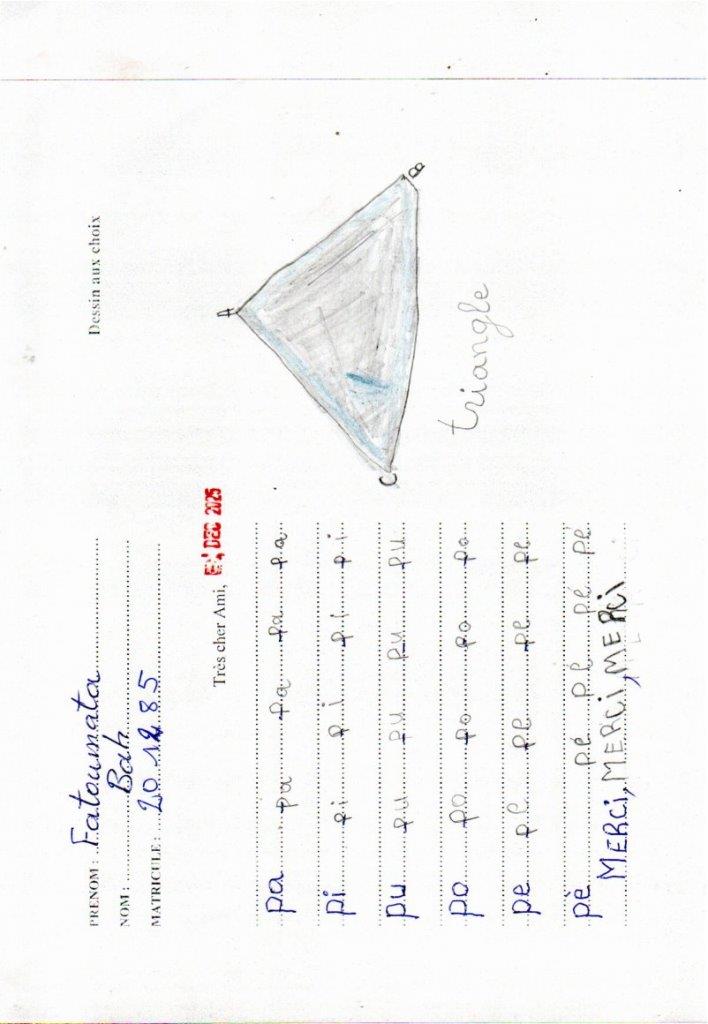 PRENOM : Fatoumata
NOM : Bah
MATRICULE : 20 12 85
Très cher Ami, DEC 2025
pa pa pa pa pa
pi pi pi pi pi
pu pu pu pu pu
po po po po po
pe pe pe pe pe
pè pé pé pé pé
MERCI, MERCI, MERCI
Dessin aux choix
A
B
C
triangle